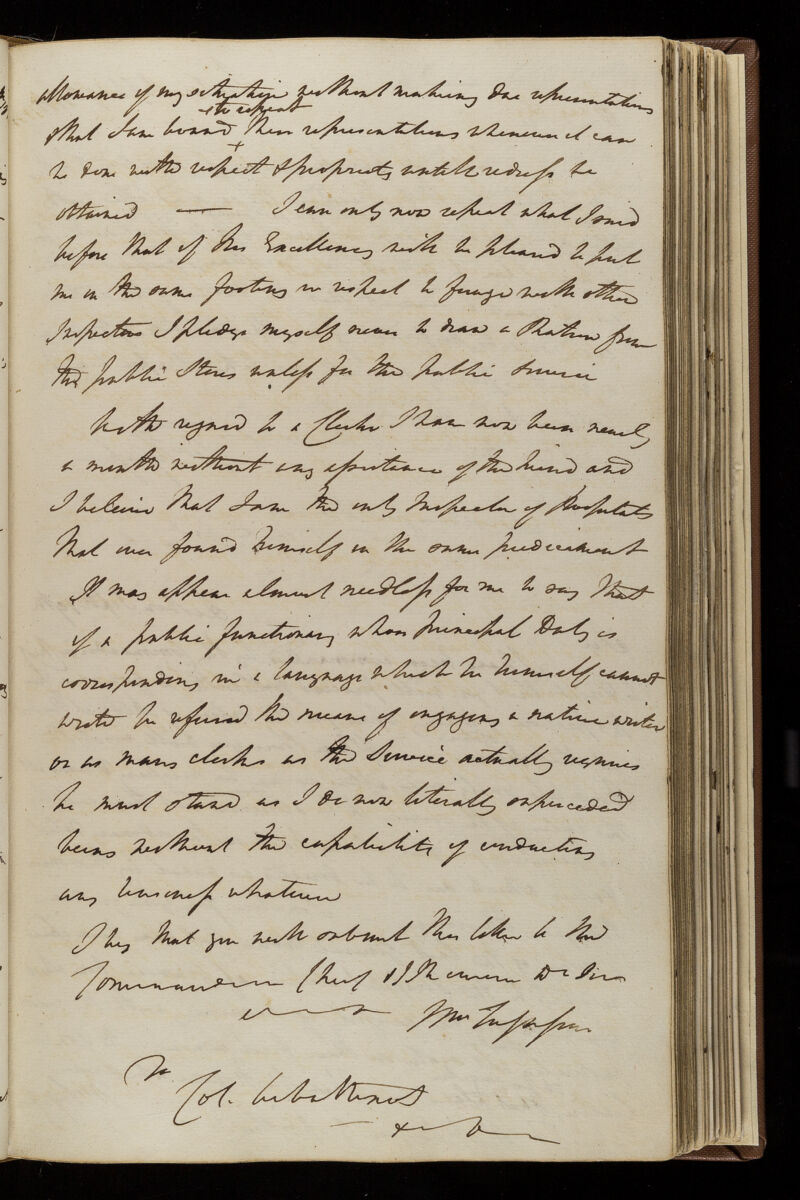 allowance of my situation without making due representations
& that I am bound to repeat these representations whenever it can
be done with respect & propriety until redress be
obtained — I can only now repeat what I said
before that if His Excellency will be pleased to put
me on the same footing in respect to forage with other
Inspectors I pledge myself never to draw a Ration from
the public Stores unless for the public Service
With regard to a Clerk I have now been nearly
a month without any assistance of the kind and
I beleive that I am the only Inspector of Hospitals
that ever found himself in the same predicament
It may appear almost needless for me to say that
if a public functionary whose principal Duty is
corresponding in a language which he himself cannot
write be refused the means of engaging a native writer
or as many clerks as the Service actually requires
he must stand as I do now literally superceded
being without the capability of conducting
any business whatever
I beg that you will submit this letter to the
Commander in Chief & I remain Dr Sir
Yrs
To
Col.